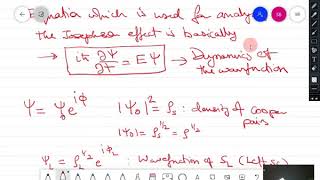 Equation which is used for analy
the Josephson effect is basically
→ iℏ ∂Ψ/∂t = EΨ → Dynamics of
the wavefunction
Ψ = Ψ₀e^{iϕ} |Ψ₀|² = ρₛ : density of Cooper
pairs
|Ψ₀| = ρₛ^{1/2} = ρ^{1/2}
Ψ_L = ρ_L^{1/2} e^{iϕ_L} : Wavefunction of S_L (Left